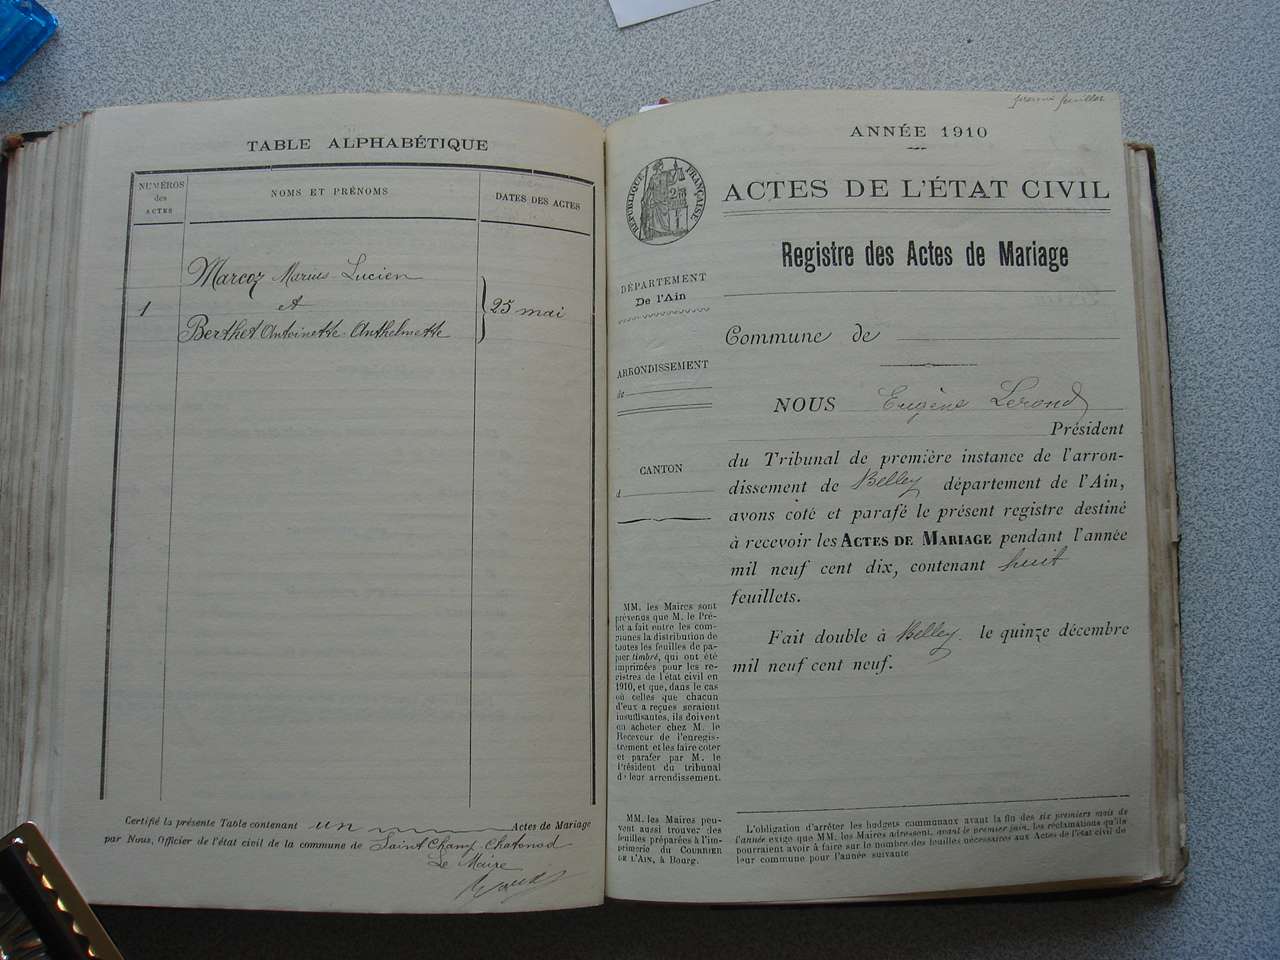 TABLE ALPHABÉTIQUE
NUMÉROS
des
ACTES
NOMS ET PRÉNOMS
DATES DES ACTES
Marcoz Marius Lucien
1
et
25 mai
Berthet Antoinette Anthelmette
Certifié la présente Table contenant un Actes de Mariage
par Nous, Officier de l'état civil de la commune de Saint Champ Chatonod
Le Maire
ANNÉE 1910
RÉPUBLIQUE FRANÇAISE
ACTES DE L'ÉTAT CIVIL
Registre des Actes de Mariage
DÉPARTEMENT
De l'Ain
ARRONDISSEMENT
de
CANTON
d
Commune de
NOUS Eugène Lerond
Président
du Tribunal de première instance de l'arron-
dissement de Belley département de l'Ain,
avons coté et parafé le présent registre destiné
à recevoir les ACTES DE MARIAGE pendant l'année
mil neuf cent dix, contenant huit
feuillets.
Fait double à Belley le quinze décembre
mil neuf cent neuf.
MM. les Maires sont
prévenus que M. le Pré-
fet a fait entre les com-
munes la distribution de
toutes les feuilles de pa-
pier timbré, qui ont été
imprimées pour les re-
gistres de l'état civil en
1910, et que, dans le cas
où celles que chacun
d'eux a reçues seraient
insuffisantes, ils doivent
en acheter chez M. le
Receveur de l'enregis-
trement et les faire coter
et parafer par M. le
Président du tribunal
de leur arrondissement.
MM. les Maires peu-
vent aussi trouver des
feuilles préparées à l'im-
primerie du COURRIER
DE L'AIN, à Bourg.
L'obligation d'arrêter les budgets communaux avant la fin des six premiers mois de
l'année exige que MM. les Maires adressent, avant le premier juin, les réclamations qu'ils
pourraient avoir à faire sur le nombre des feuilles nécessaires aux Actes de l'état civil de
leur commune pour l'année suivante